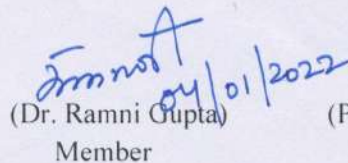 04/01/2022
(Dr. Ramni Gupta) (P
Member